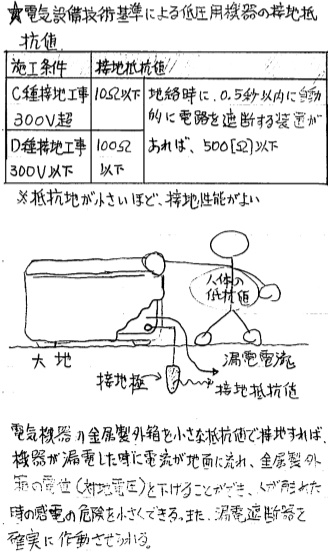 ★電気設備技術基準による低圧用機器の接地抵
抗値
施工条件 接地抵抗値
C種接地工事
300V超
10Ω以下
D種接地工事
300V以下
100Ω
以下
地絡時に、0.5秒以内に自動
的に電路を遮断する装置が
あれば、500[Ω]以下
※抵抗地が小さいほど、接地性能がよい
人体の
抵抗値
大地
漏電電流
接地極
接地抵抗値
電気機器の金属製外箱を小さな抵抗値で接地すれば、
機器が漏電した時に電流が地面に流れ、金属製外
箱の電位(対地電圧)を下げることができ、人が触れた
時の感電の危険を小さくできる。また、漏電遮断器を
確実に作動させられる。